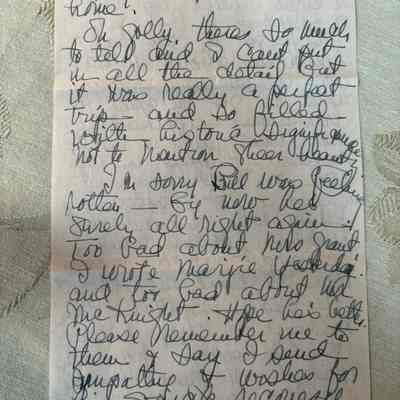 home!
Oh golly, theres so much
to tell and I cant put
in all the detail but
it was really a perfect
trip — and so filled
with historic significance,
not to mention sheer beauty.
I'm sorry Bill was feeling
rotten — By now he's
surely all right again.
Too bad about Mrs Grant.
I wrote Marjie yesterday
and too bad about Mr
McKnight. Hope he's better.
Please remember me to
them & say I send
sympathy & wishes for